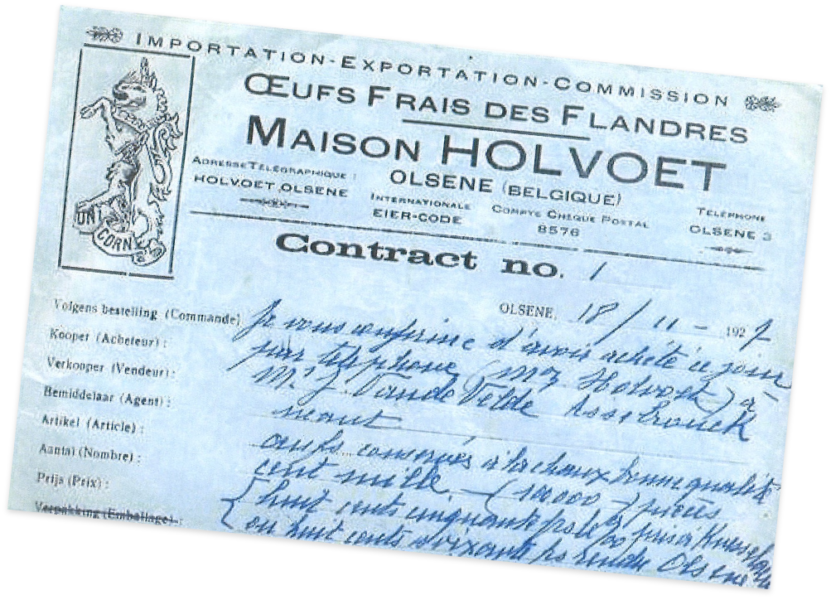 IMPORTATION-EXPORTATION-COMMISSION
ŒUFS FRAIS DES FLANDRES
MAISON HOLVOET
OLSENE (BELGIQUE)
ADRESSE TÉLÉGRAPHIQUE :
HOLVOET.OLSENE
INTERNATIONALE
EIER-CODE
COMPTE CHEQUE POSTAL
8576
TÉLÉPHONE
OLSENE 3
UNI CORNE
Contract no. 1
OLSENE, 18/11- 1927
Volgens bestelling (Commande) Je vous confirme d'avoir acheté ce jour
Kooper (Acheteur) : par téléphone (Holvoet) à
Verkooper (Vendeur) : Mr J. Vande Velde Assebrouck
Bemiddelaar (Agent) : néant
Artikel (Article) : œufs conservés à la chaux bonne qualité
Aantal (Nombre) : cent mille (100.000) pièces
Prijs (Prix) : huit cents cinquante pris à
Verpakking (Emballage) : ou huit cents soixante rendu Olsene